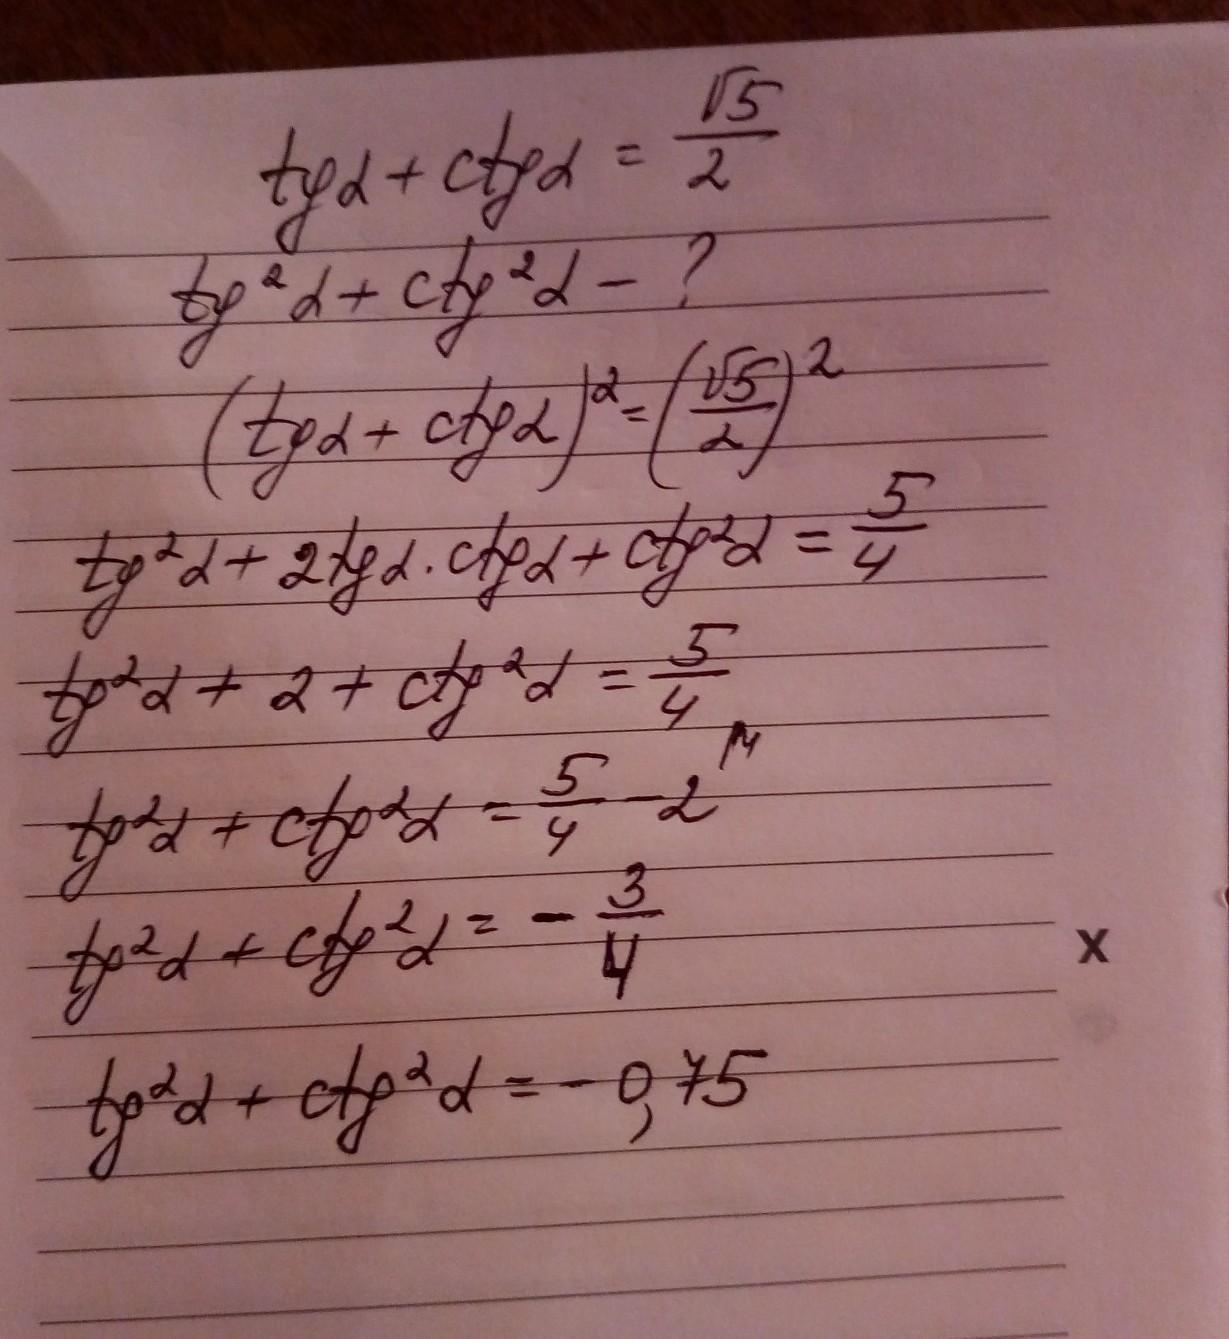 tgα + ctgα = √5/2
tg²α + ctg²α - ?
(tgα + ctgα)² = (√5/2)²
tg²α + 2tgα · ctgα + ctg²α = 5/4
tg²α + 2 + ctg²α = 5/4
tg²α + ctg²α = 5/4 - 2 ⁄4
tg²α + ctg²α = - 3/4
x
tg²α + ctg²α = - 0,75